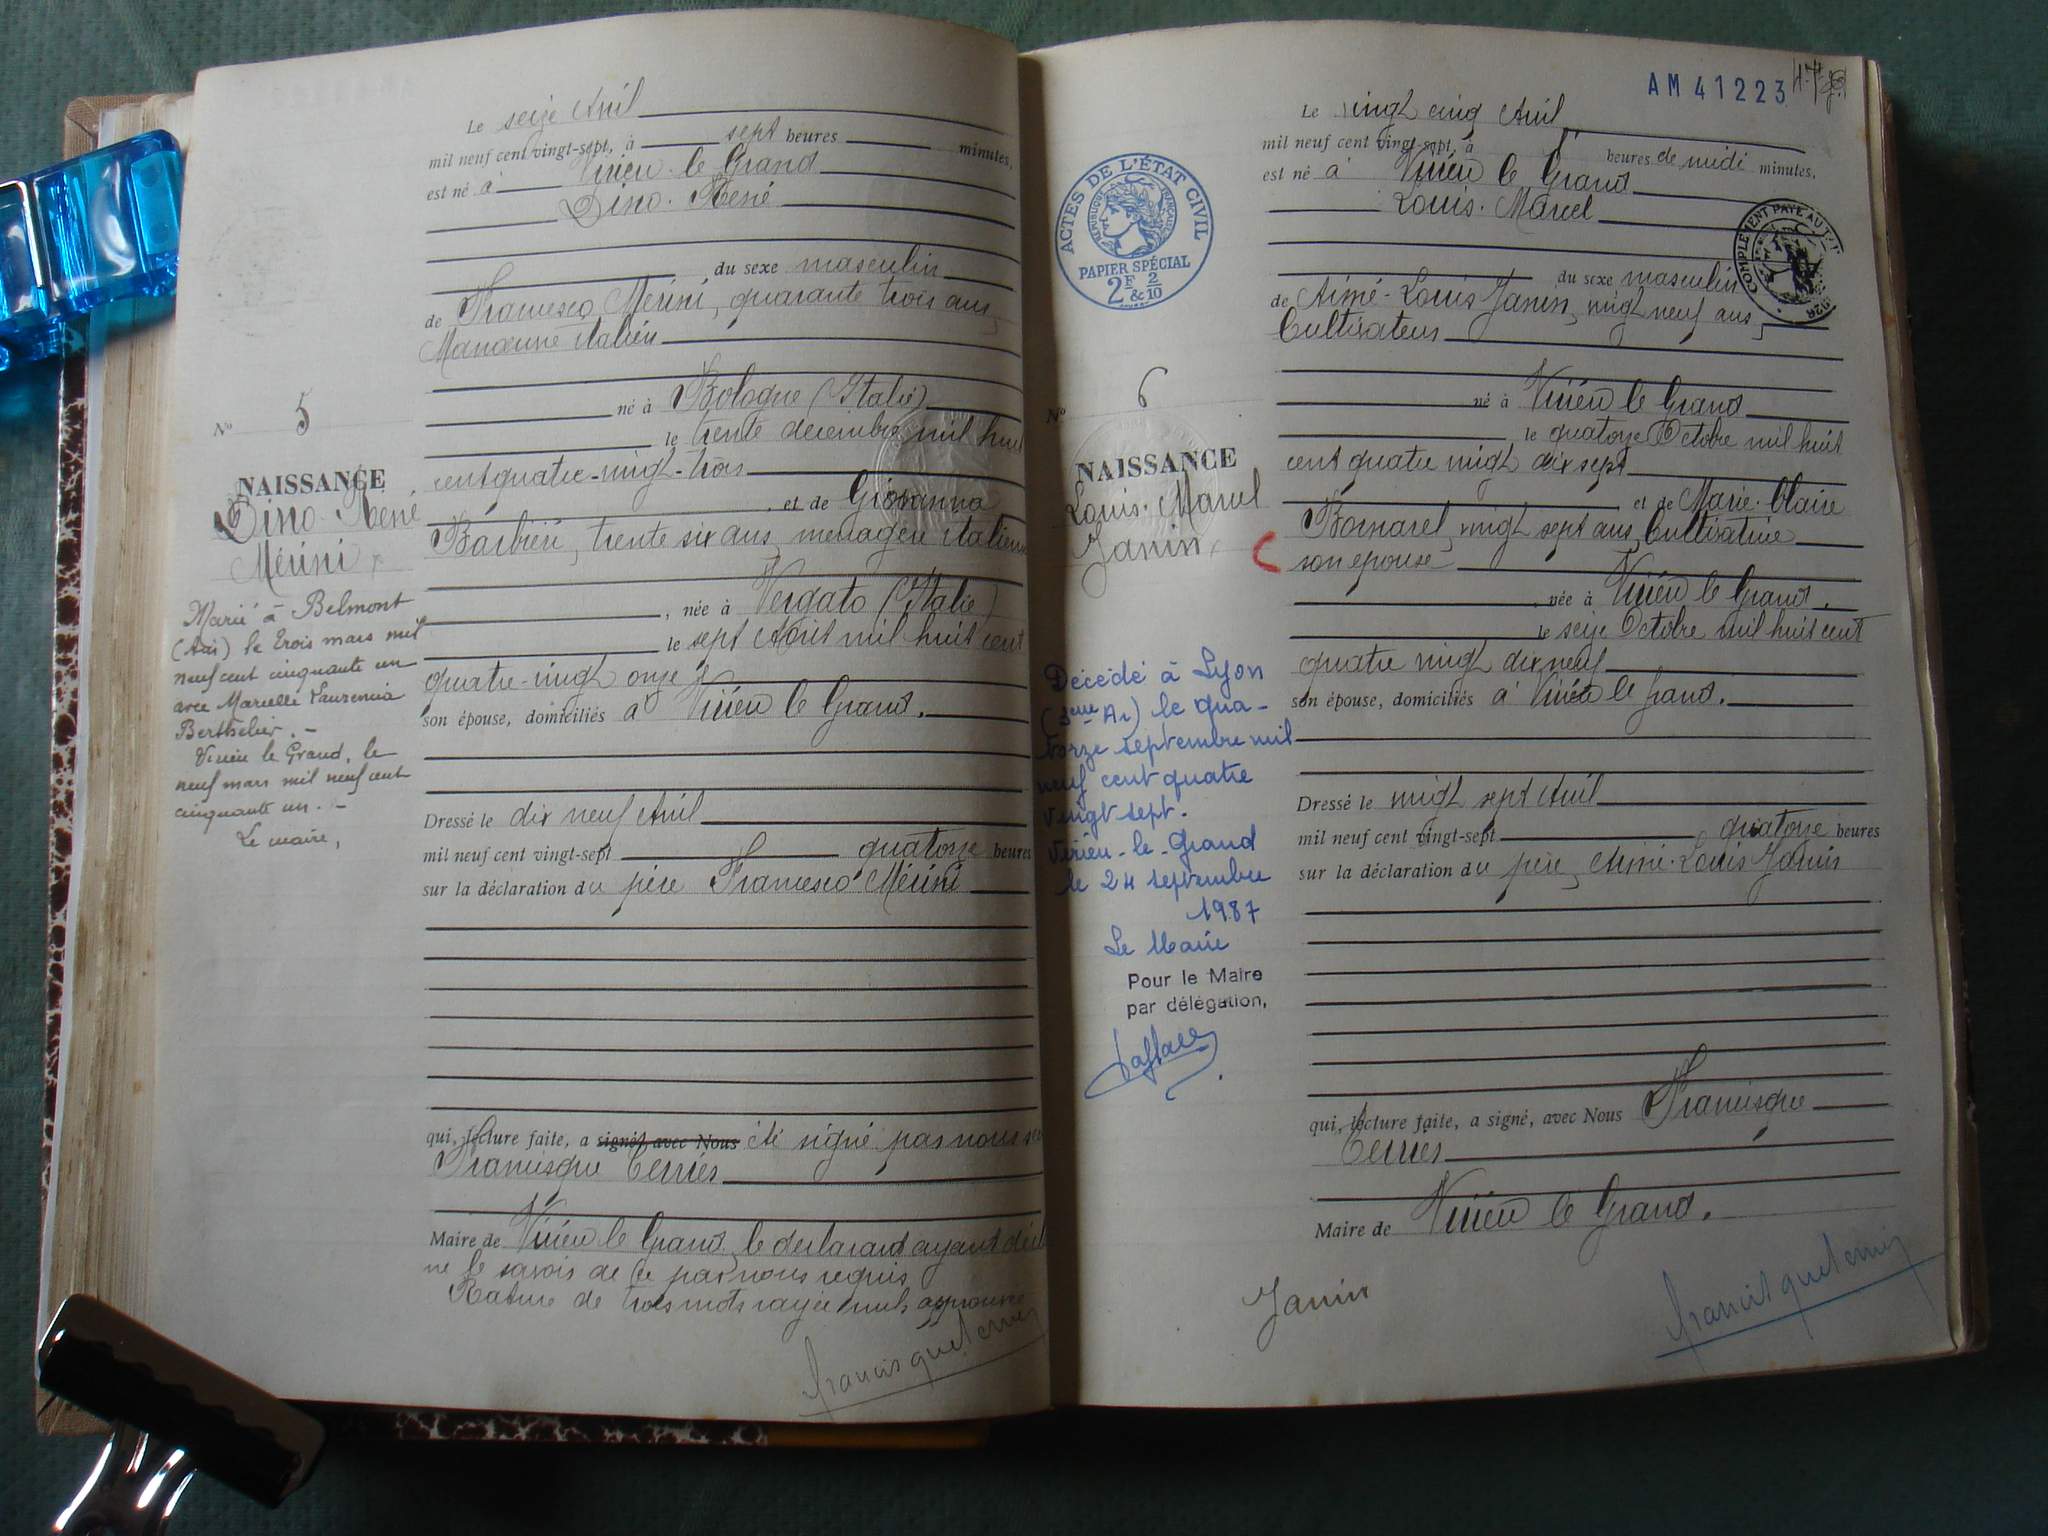 Le seize Avril
mil neuf cent vingt-sept, à sept heures minutes,
est né à Virieu-le-Grand
Dino-René
du sexe masculin
de Francesco Mérini, quarante trois ans,
Manœuvre italien
né à Bologne (Italie)
le trente décembre mil huit
cent quatre-vingt-trois
et de Giovanna
Barbiéri, trente six ans, ménagère italienne
née à Vergato (Italie)
le sept Août mil huit cent
quatre-vingt onze
son épouse, domiciliés à Virieu le Grand.
Dressé le dix neuf Avril
mil neuf cent vingt-sept quatorze heures
sur la déclaration du père Francesco Mérini
qui, lecture faite, a signé, avec Nous été signé par nous
Francisque Terrier
Maire de Virieu le Grand, le déclarant ayant
ne le savoir de ce par nous requis
Rature de trois mots rayés nuls approuvée
francisque terrier
N° 5
NAISSANCE
Dino-René
Mérini
Marié à Belmont
(Ain) le trois mars mil
neuf cent cinquante un
avec Marcelle Laurencia
Berthelier. -
Virieu le Grand, le
neuf mars mil neuf cent
cinquante un. -
Le maire,
AM 41223
ACTES DE L'ÉTAT CIVIL
RÉPUBLIQUE FRANÇAISE
PAPIER SPÉCIAL
2F & 2/10
COMPLÉMENT PAYÉ AU
1926
Le vingt cinq Avril
mil neuf cent vingt-sept, à heures de midi minutes,
est né à Virieu le Grand
Louis-Marcel
du sexe masculin
de Aimé-Louis Janin, vingt neuf ans,
Cultivateur
né à Virieu le Grand
le quatorze Octobre mil huit
cent quatre vingt dix sept
et de Marie-Claire
Bornarel, vingt sept ans, Cultivatrice
son épouse
née à Virieu le Grand.
le seize Octobre mil huit cent
quatre vingt dix neuf
son épouse, domiciliés à Virieu le Grand.
Dressé le vingt sept Avril
mil neuf cent vingt-sept quatorze heures
sur la déclaration du père, Aimé-Louis Janin
qui, lecture faite, a signé, avec Nous Francisque
Terrier
Maire de Virieu le Grand.
Janin
francisque terrier
N° 6
NAISSANCE
Louis-Marcel
Janin
Décédé à Lyon
(3eme Ar) le qua-
torze septembre mil
neuf cent quatre
vingt sept.
Virieu-le-Grand
le 24 septembre
1987
Le Maire
Pour le Maire
par délégation,